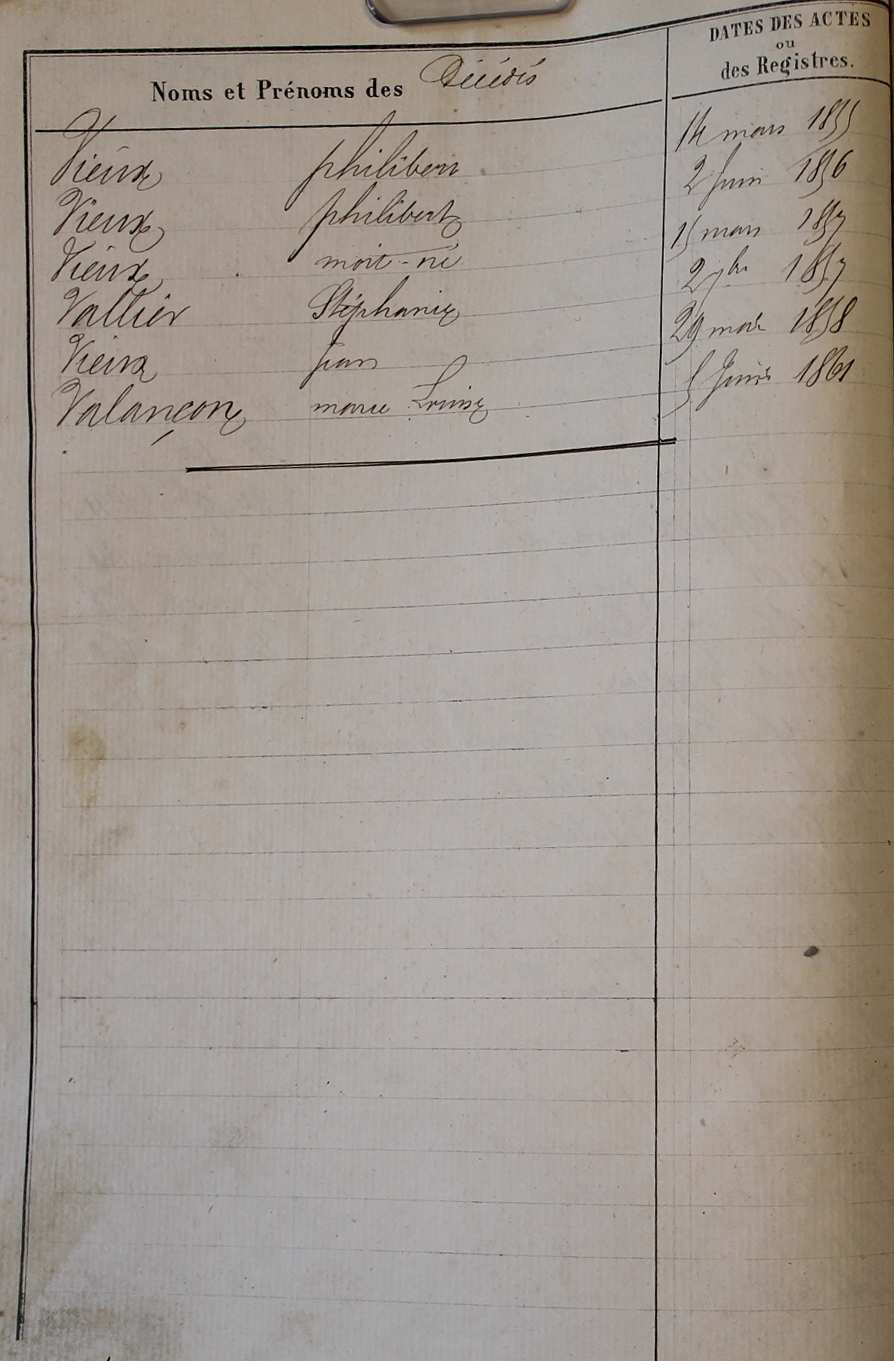 Noms et Prénoms des Décédés
DATES DES ACTES
ou
des Registres.
Vieux philibert 14 mars 1855
Vieux philibert 2 Juin 1856
Vieux mort-né 15 mars 1857
Vallier Stéphanie 2 7bre 1857
Vieux Jean 29 1858
Valançon marie Louise 5 1861